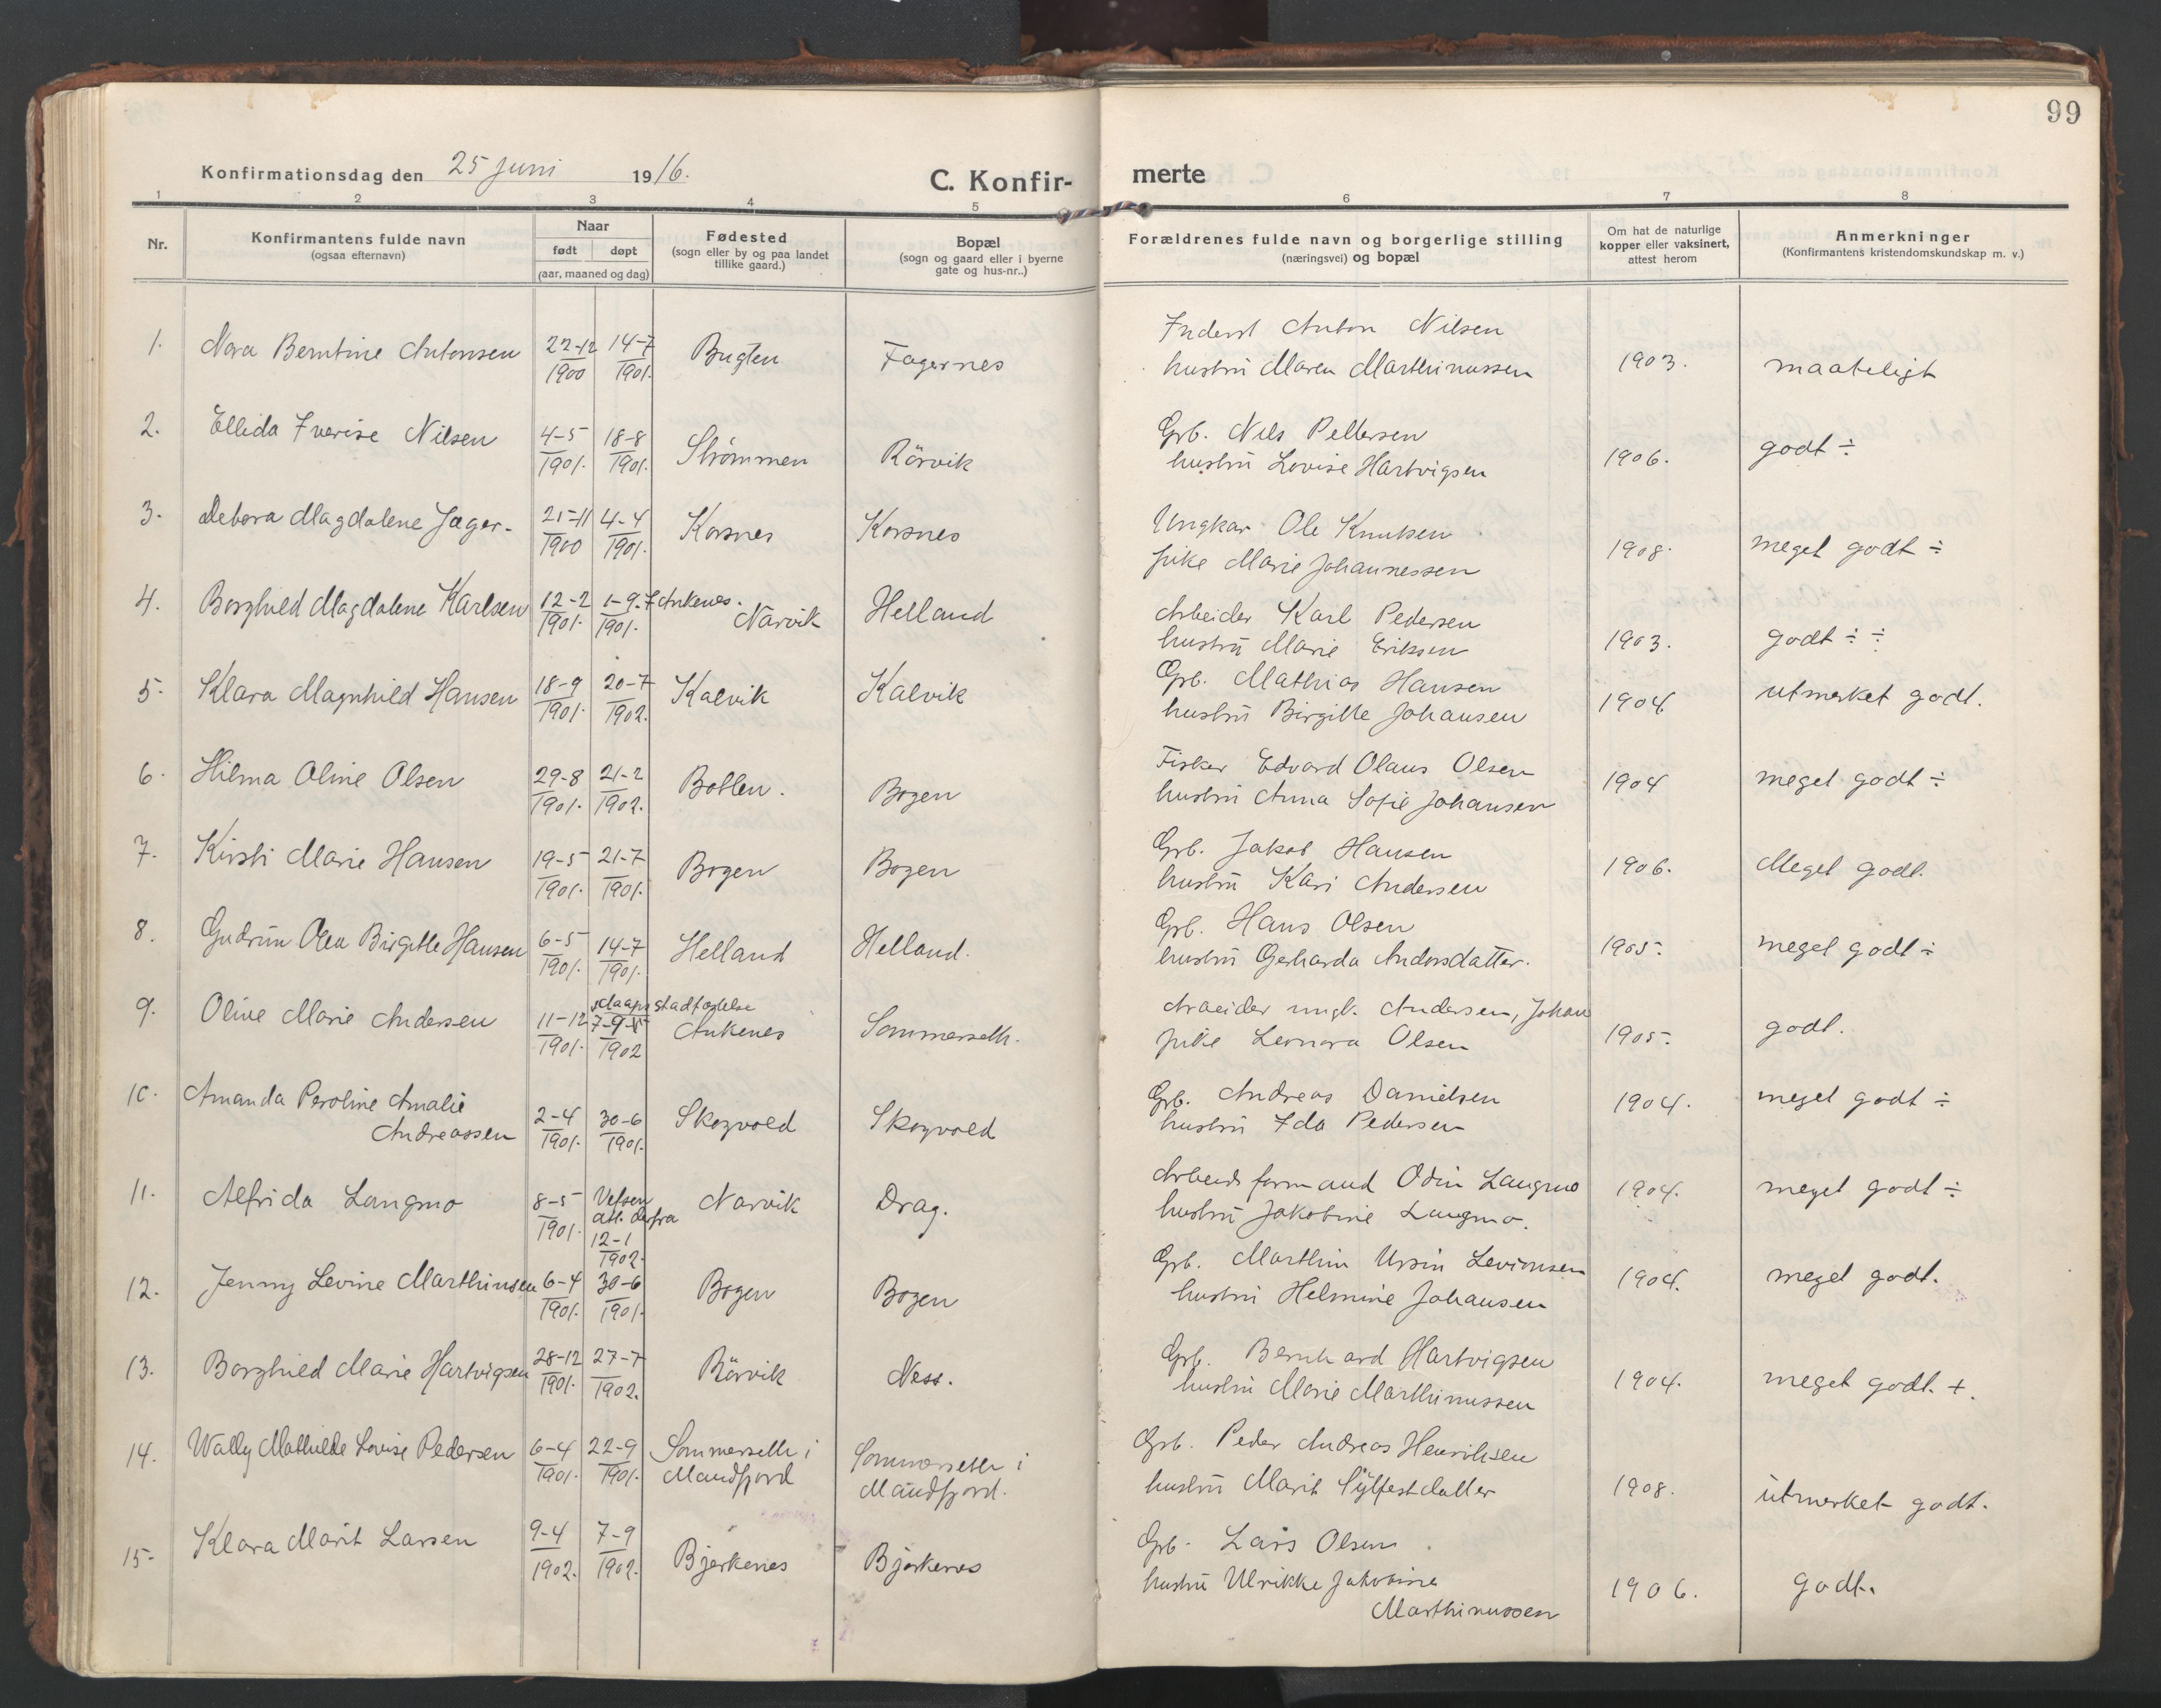 99
Konfirmationsdag den 25 juni 1916.
C. Konfir-
merte
1 2 3 4 5 6 7 8
Nr.
Konfirmantens fulde navn
(ogsaa efternavn)
Naar
født døpt
(aar, maaned og dag)
Fødested
(sogn eller by og paa landet
tillike gaard.)
Bopæl
(sogn og gaard eller i byerne
gate og hus-nr..)
Forældrenes fulde navn og borgerlige stilling
(næringsvei) og bopæl
Om hat de naturlige
kopper eller vaksinert,
attest herom
Anmerkninger
(Konfirmantens kristendomskundskap m. v.)
1. Nora Berntine Antonsen 22-12 1900 14-7 1901. Bugten Fagernes
Inderst Anton Nilsen
hustrü Maren Marthinussen 1903. maateligt
2. Ellida Iverise Nilsen 4-5 1901. 18-8 1901. Strömmen Rörvik
Grb. Nils Pettersen
hustrü Lovise Hartvigsen 1906. godt ÷
3. Debora Magdalene Jæger. 21-11 1900 4-4 1901. Korsnes Korsnes
Ungkar Ole Knutsen
pike Marie Johannessen 1908. meget godt ÷
4. Borghild Magdalene Karlsen 12-2 1901. 1-9. 1901. Ankenes. Narvik Helland
Arbeider Karl Pedersen
hustrü Marie Eriksen 1903. godt ÷ ÷
5. Klara Magnhild Hansen 18-9 1901. 20-7 1902. Kalvik Kalvik
Grb. Mathias Hansen
hustrü Birgitte Johansen 1904 utmerket godt.
6. Hilma Oline Olsen 29-8 1901. 21-2 1902. Botten. Bogen
Fisker Edvard Olaus Olsen
hustrü Anna Sofie Johansen 1904 meget godt ÷
7. Kirsti Marie Hansen 19-5 1901. 21-7 1901. Bogen Bogen
Grb. Jakob Hansen
hustrü Kari Andersen 1906. Meget godt.
8. Gudrün Olea Birgitte Hansen 6-5 1901. 14-7 1901. Helland Helland.
Grb. Hans Olsen
hustrü Gerharda Andersdatter. 1905. meget godt ÷
9. Oline Marie Andersen 11-12 1901. daaps stadfæstelse 7-9 1902 Ankenes Sommerseth.
Arbeider ungk. Andersen, Johan
pike Leonora Olsen 1905. godt.
10. Amanda Peroline Amalie
Andreassen 2-4 1901. 30-6 1901. Skogvold Skogvold
Grb. Andreas Danielsen
hustrü Ida Pedersen 1904. meget godt ÷
11. Alfrida Langmo 8-5 1901. Vefsen att. derfra 12-1 1902. Narvik Drag.
Arbeids formand Odin Langmo
hustrü Jakobine Langmo. 1904. meget godt ÷
12. Jenny Levine Marthinsen 6-4 1901. 30-6 1901. Bogen Bogen
Grb. Marthin Ursin Levinsen
hustrü Helmine Johansen 1904. meget godt.
13. Borghild Marie Hartvigsen 28-12 1901. 27-7 1902. Rörvik Ness.
Grb. Bernhard Hartvigsen
hustrü Marie Marthinussen 1904. meget godt. +.
14. Wally Mathilde Lovise Pedersen 6-4 1901. 22-9 1901. Sommerseth i Mandfjord Sommerseth i Mandfjord.
Grb. Peder Andreas Henriksen
hustrü Marit Sylfestdatter 1908. utmerket godt.
15. Klara Marit Larsen 9-4 1902. 7-9 1902. Bjerkenes Bjerkenes
Grb. Lars Olsen.
hustrü Ulrikke Jakobine
Marthinussen 1906. godt.